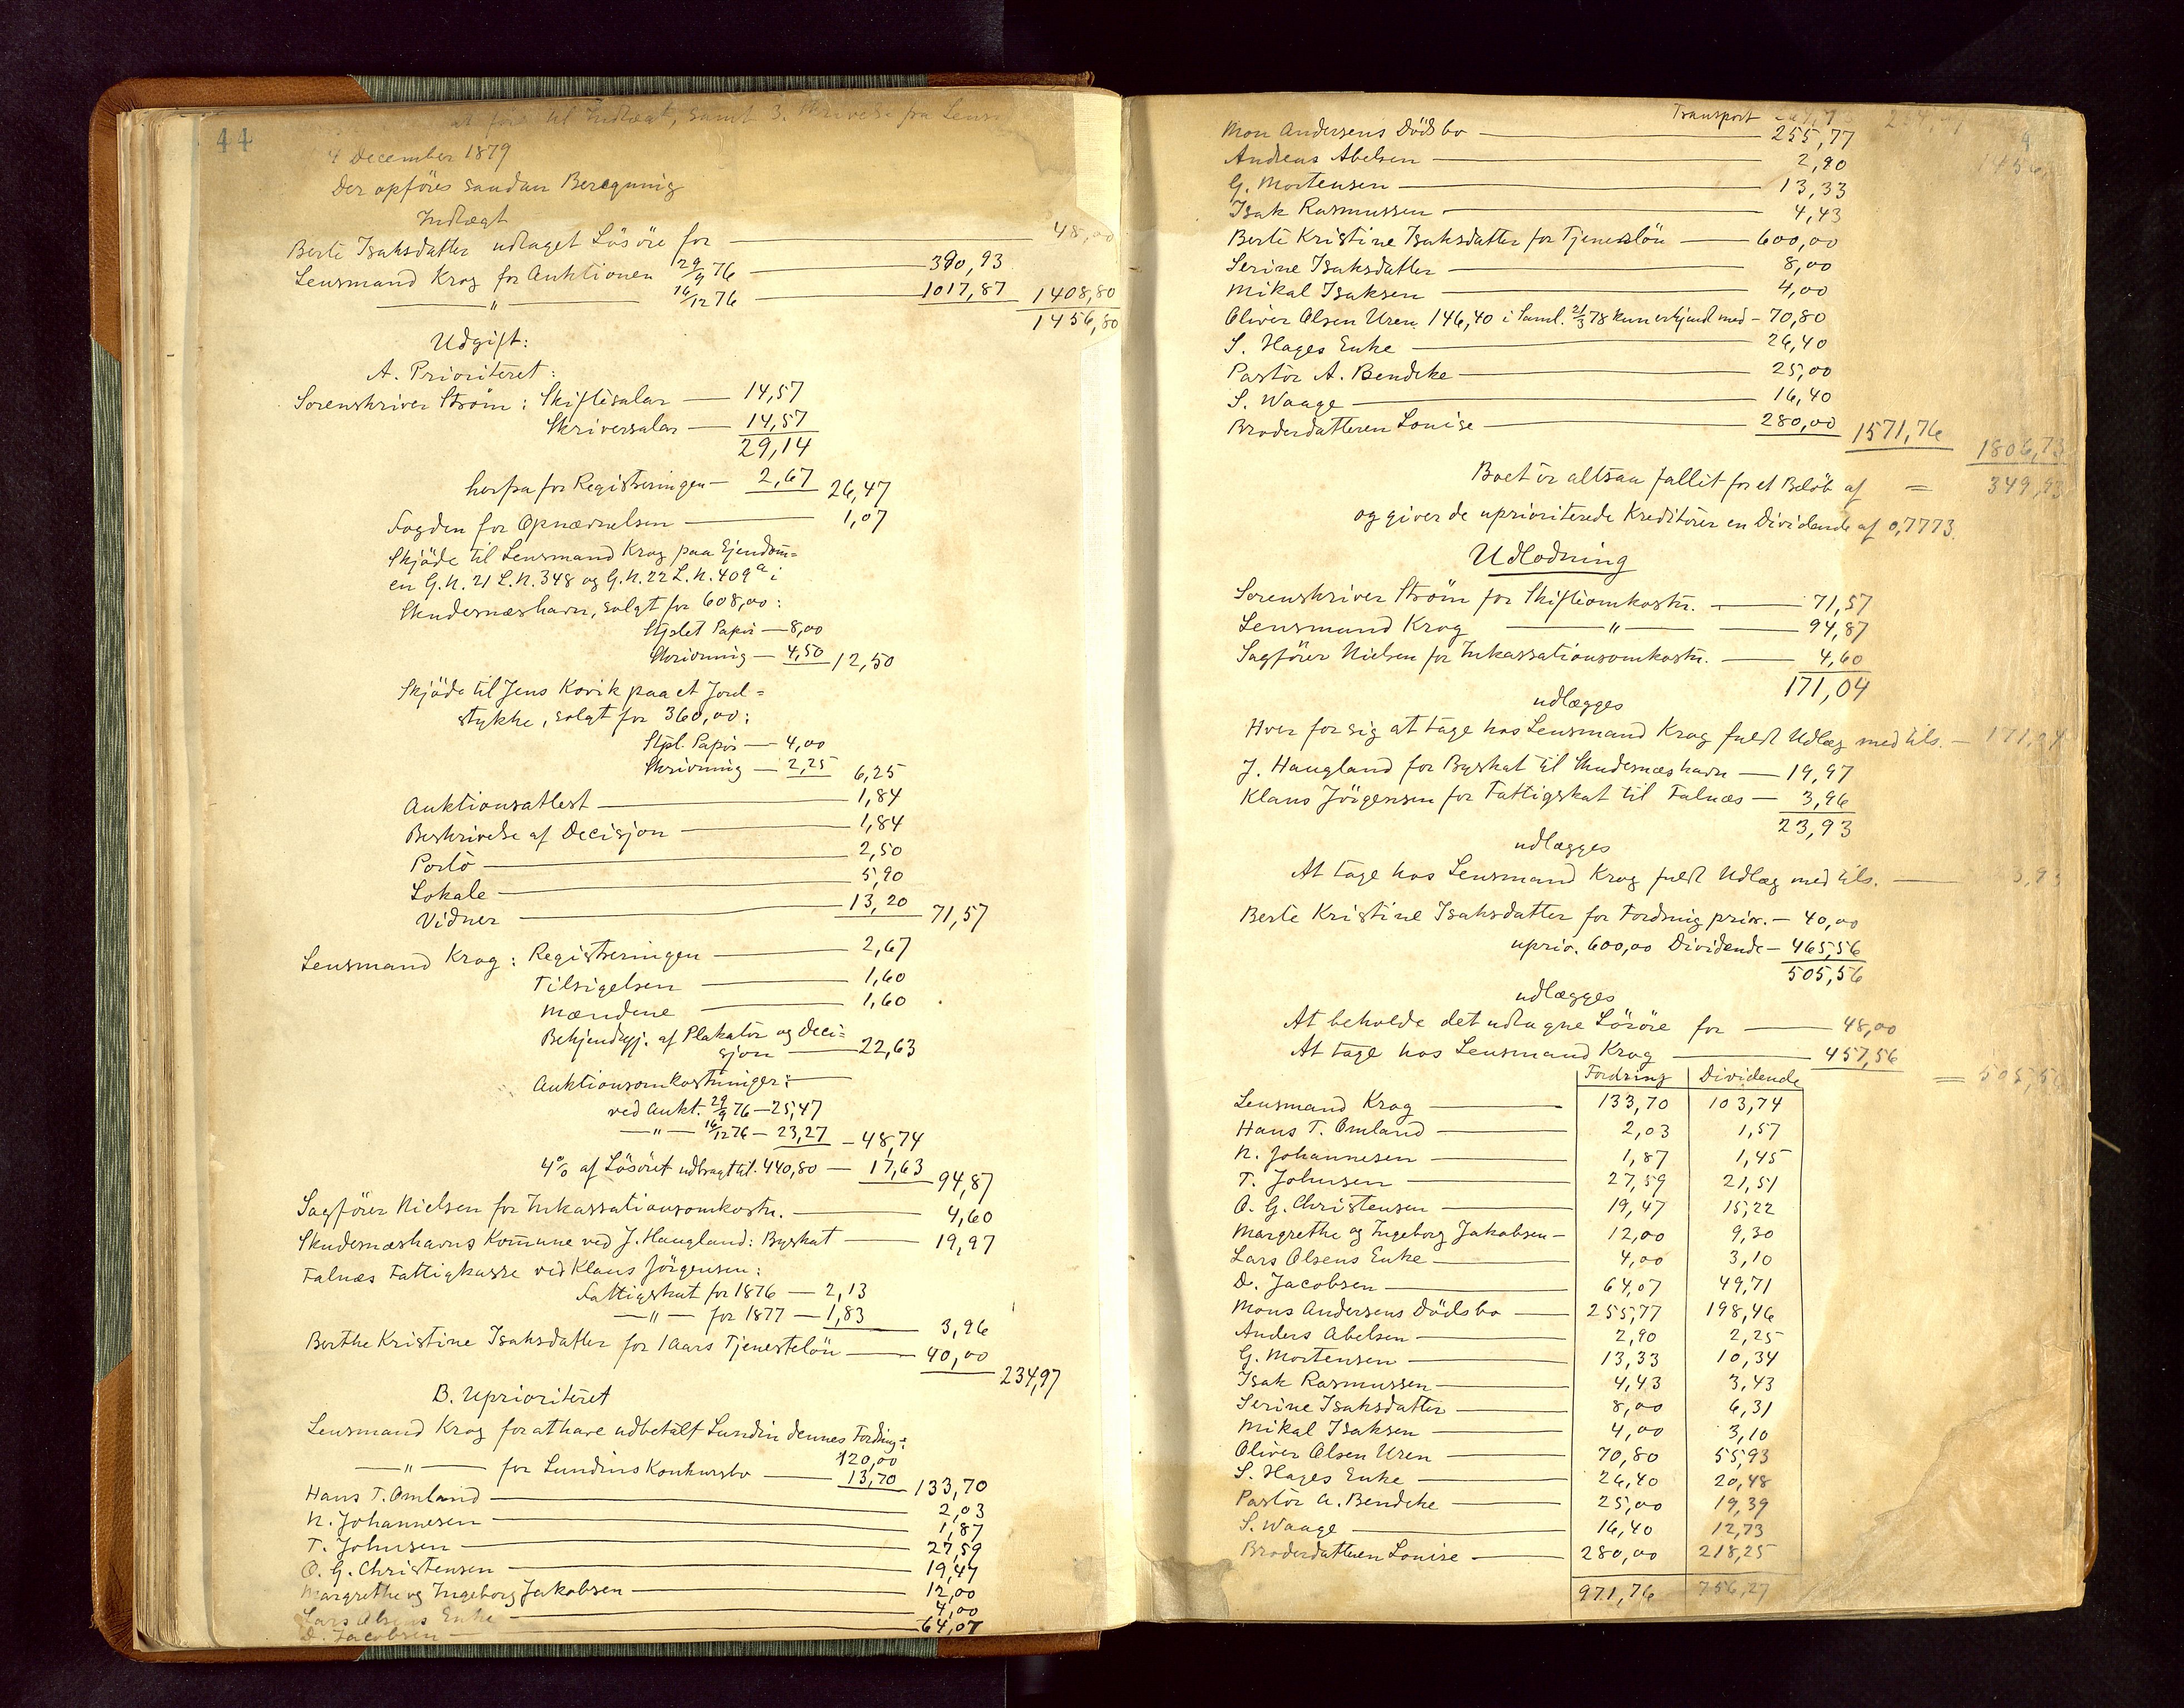 44
at före til Indtægt, samt 3. Skrivelse fra Lens
4 December 1879
Der opföres saadan Beregning
Indtægt
Berte Isaksdatter udtaget Lösöre for — 48,00
Lensmand Krog for Auktionen 29/9 76 — 390,93
— " — 16/12 76 — 1017,87 1408,80
1456,80
Udgift:
A. Prioriteret:
Sorenskriver Ström: Skiftesalar — 14,57
Skriversalar — 14,57
29,14
herfra for Registreringen — 2,67 26,47
Fogden for Opnævnelsen — 1,07
Skjöde til Lensmand Krog paa Ejendom=
en G.N. 21 L.N. 348 og G.N. 22 L.N. 409a i
Skudesnæshavn, solgt for 608,00:
Stplet Papir — 8,00
Skrivning — 4,50 12,50
Skjöde til Jens Kovik paa et Jord=
stykke, solgt for 360,00:
Stpl. Papir — 4,00
Skrivning — 2,25 6,25
Auktionsattest — 1,84
Beskrivelse af Decisjon — 1,84
Porto — 2,50
Lokale — 5,90
Vidner — 13,20 71,57
Lensmand Krog: Registreringen — 2,67
Tilsigelsen — 1,60
Mændene — 1,60
Bekjendtgj. af Plakater og Deci=
sjon — 22,63
Auktionsomkostninger: —
ved Aukt. 29/9 76 — 25,47
— " — 16/12 76 — 23,27 — 48,74
4% af Lösöret udbragt til 440,80 — 17,63 94,87
Sagförer Nielsen for Inkassationsomkostn. — 4,60
Skudesnæshavns Komune ved J. Haugland: Byskat — 19,97
Falnæs Fattigkasse ved Klaus Jörgensen:
Fattigskat for 1876 — 2,13
— " — for 1877 — 1,83 3,96
Berthe Kristine Isaksdatter for 1 Aars Tjenestelön — 40,00
234,97
B. Uprioriteret
Lensmand Krog for at have udbetalt Lundin dennes Fordring:
120,00
— " — for Lundins Konkursbo — 13,70 133,70
Hans T. Omland — 2,03
N. Johannesen — 1,87
T. Johnsen — 27,59
O. G. Christensen — 19,47
Margrethe og Ingeborg Jakobsen — 12,00
Lars Olsens Enke — 4,00
D. Jacobsen — 64,07
Transport
Mon Andersens Dödsbo — 255,77
Andreas Abelsen — 2,90
G. Mortensen — 13,33
Isak Rasmussen — 4,43
Berte Kristine Isaksdatter for Tjenestlön — 600,00
Serine Isaksdatter — 8,00
Mikal Isaksen — 4,00
Oliver Olsen Uren 146,40 i Saml. 21/3 78 kun erkjendt med — 70,80
S. Hages Enke — 26,40
Pastor A. Bendeke — 25,00
S. Waage — 16,40
Broderdatteren Louise — 280,00 1571,76
1806,73
Boet er altsaa fallit for et Belöb af = 349,93
og giver de uprioriterede Kreditorer en Dividende af 0,7773.
Udlodning
Sorenskriver Ström for Skifteomkostn. — 71,57
Lensmand Krog — " — 94,87
Sagförer Nielsen for Inkassationsomkostn. — 4,60
171,04
udlægges
Hver for sig at tage hos Lensmand Krog fuldt Udlæg med tils. — 171,04
J. Haugland for Byskat til Skudesnæshavn — 19,97
Klaus Jörgensen for Fattigskat til Falnæs — 3,96
23,93
udlægges
At tage hos Lensmand Krog fuldt Udlæg med tils. — 3,93
Berte Kristine Isaksdatter for Fordring prior. — 40,00
uprio. 600,00 Dividende — 465,56
505,56
udlægges
At beholde det udtagne Lösöre for — 48,00
At tage hos Lensmand Krog — 457,56
= 505,56
Fordring Dividende
Lensmand Krog — 133,70 103,74
Hans T. Omland — 2,03 1,57
N. Johannesen — 1,87 1,45
T. Johnsen — 27,59 21,51
O. G. Christensen — 19,47 15,22
Margrethe og Ingeborg Jakobsen — 12,00 9,30
Lars Olsens Enke — 4,00 3,10
D. Jacobsen — 64,07 49,71
Mons Andersens Dödsbo — 255,77 198,46
Anders Abelsen — 2,90 2,25
G. Mortensen — 13,33 10,34
Isak Rasmussen — 4,43 3,43
Serine Isaksdatter — 8,00 6,31
Mikal Isaksen — 4,00 3,10
Oliver Olsen Uren — 70,80 55,93
S. Hages Enke — 26,40 20,48
Pastor A. Bendeke — 25,00 19,39
S. Waage — 16,40 12,73
Broderdatteren Louise — 280,00 218,25
971,76 756,27